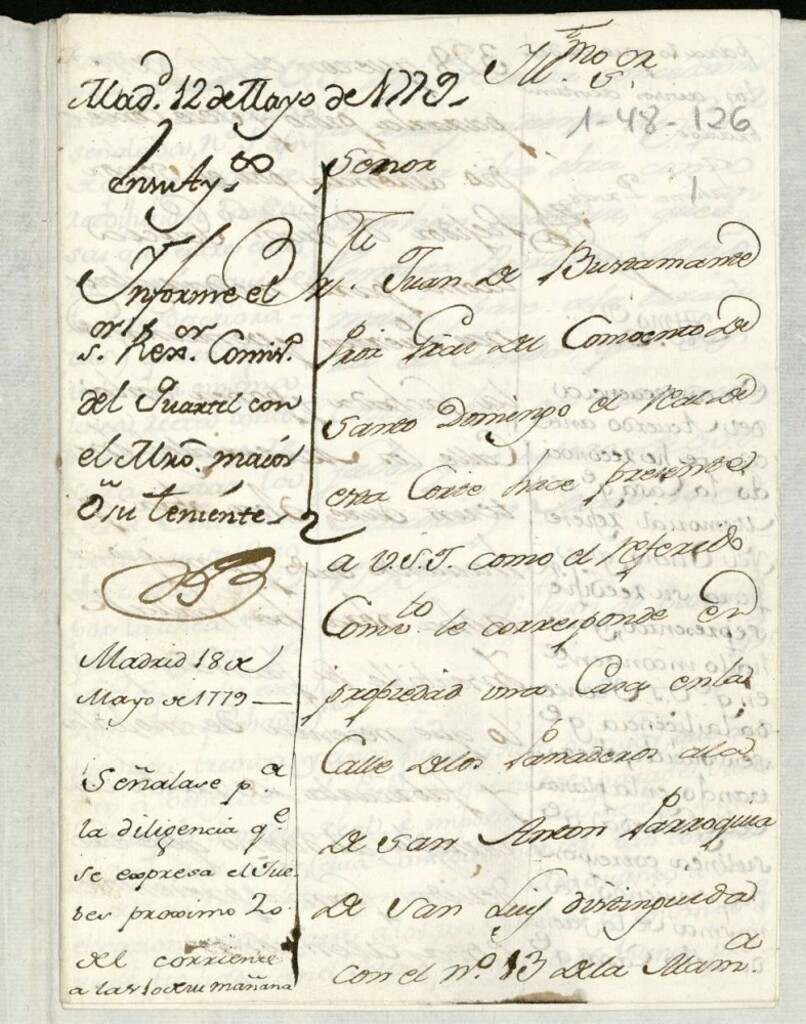 Yll.mo S.or
1-48-126
1
Mad.d 12 de Mayo de 1779.
En su Ay.to
Informe el
s.or Rex.or Comis.o
del Quartel con
el Mro. maior
o su teniente
Madrid 18 de
Mayo de 1779
Señalase p.a
la diligencia q.e
se expresa el Jue-
bes proximo 20.
del corriente
a las 10 de su mañana
Señor
Fr. Juan de Bustamante
Prior del Comvento de
Santo Domingo el Real de
esta Corte hace presente
a V.S.I. como el referido
Comv.to le corresponde en
propiedad una Casa en la
Calle de los Panaderos a la
de San Anton Parroquia
de San Luis distinguida
con el n.o 13 de la Manz.a